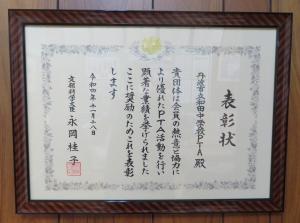 表彰状
丹波市立和田中学校PTA殿
貴団体は会員の熱意と協力に
より優れたPTA活動を行い
顕著な業績を挙げられました
ここに奨励のためこれを表彰
します
令和四年十一月十八日
文部科学大臣 永岡桂子